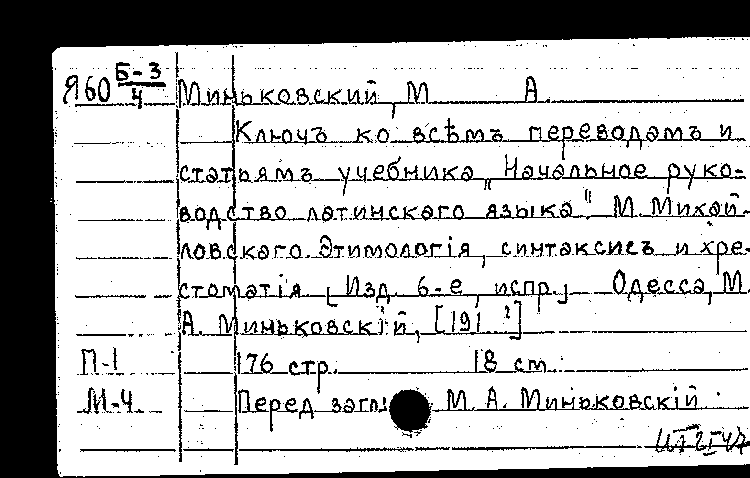 Я60 Б-3/4 Миньковский, М А.
Ключъ ко всѣмъ переводамъ и
статьямъ учебника „Начальное руко-
водство латинскаго языка". М. Михай-
ловскаго. Этимологія, синтаксисъ и хре-
стоматія [Изд. 6-е, испр.] Одесса, М.
А. Миньковскій, [191 ?]
П-1 176 стр. 18 см.
М-4 Перед загл М. А. Миньковскій